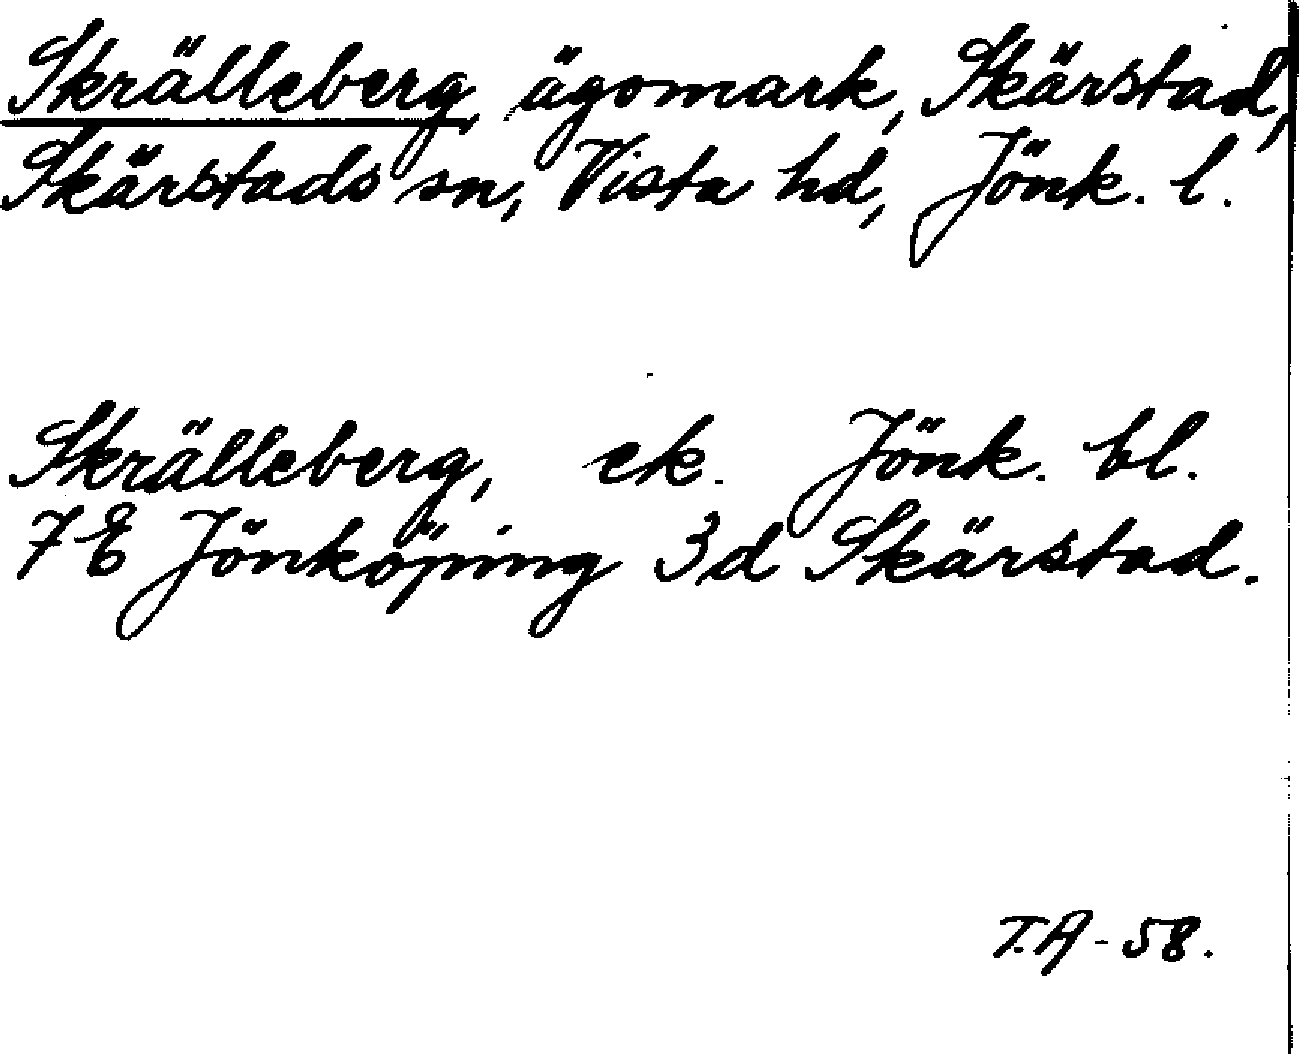 Skrälleberg, ägomark, Skärstad,
Skärstads sn, Vista hd, Jönk. l.
Skrälleberg, ek. Jönk. bl.
7E Jönköping 3d Skärstad.
T.A-58.